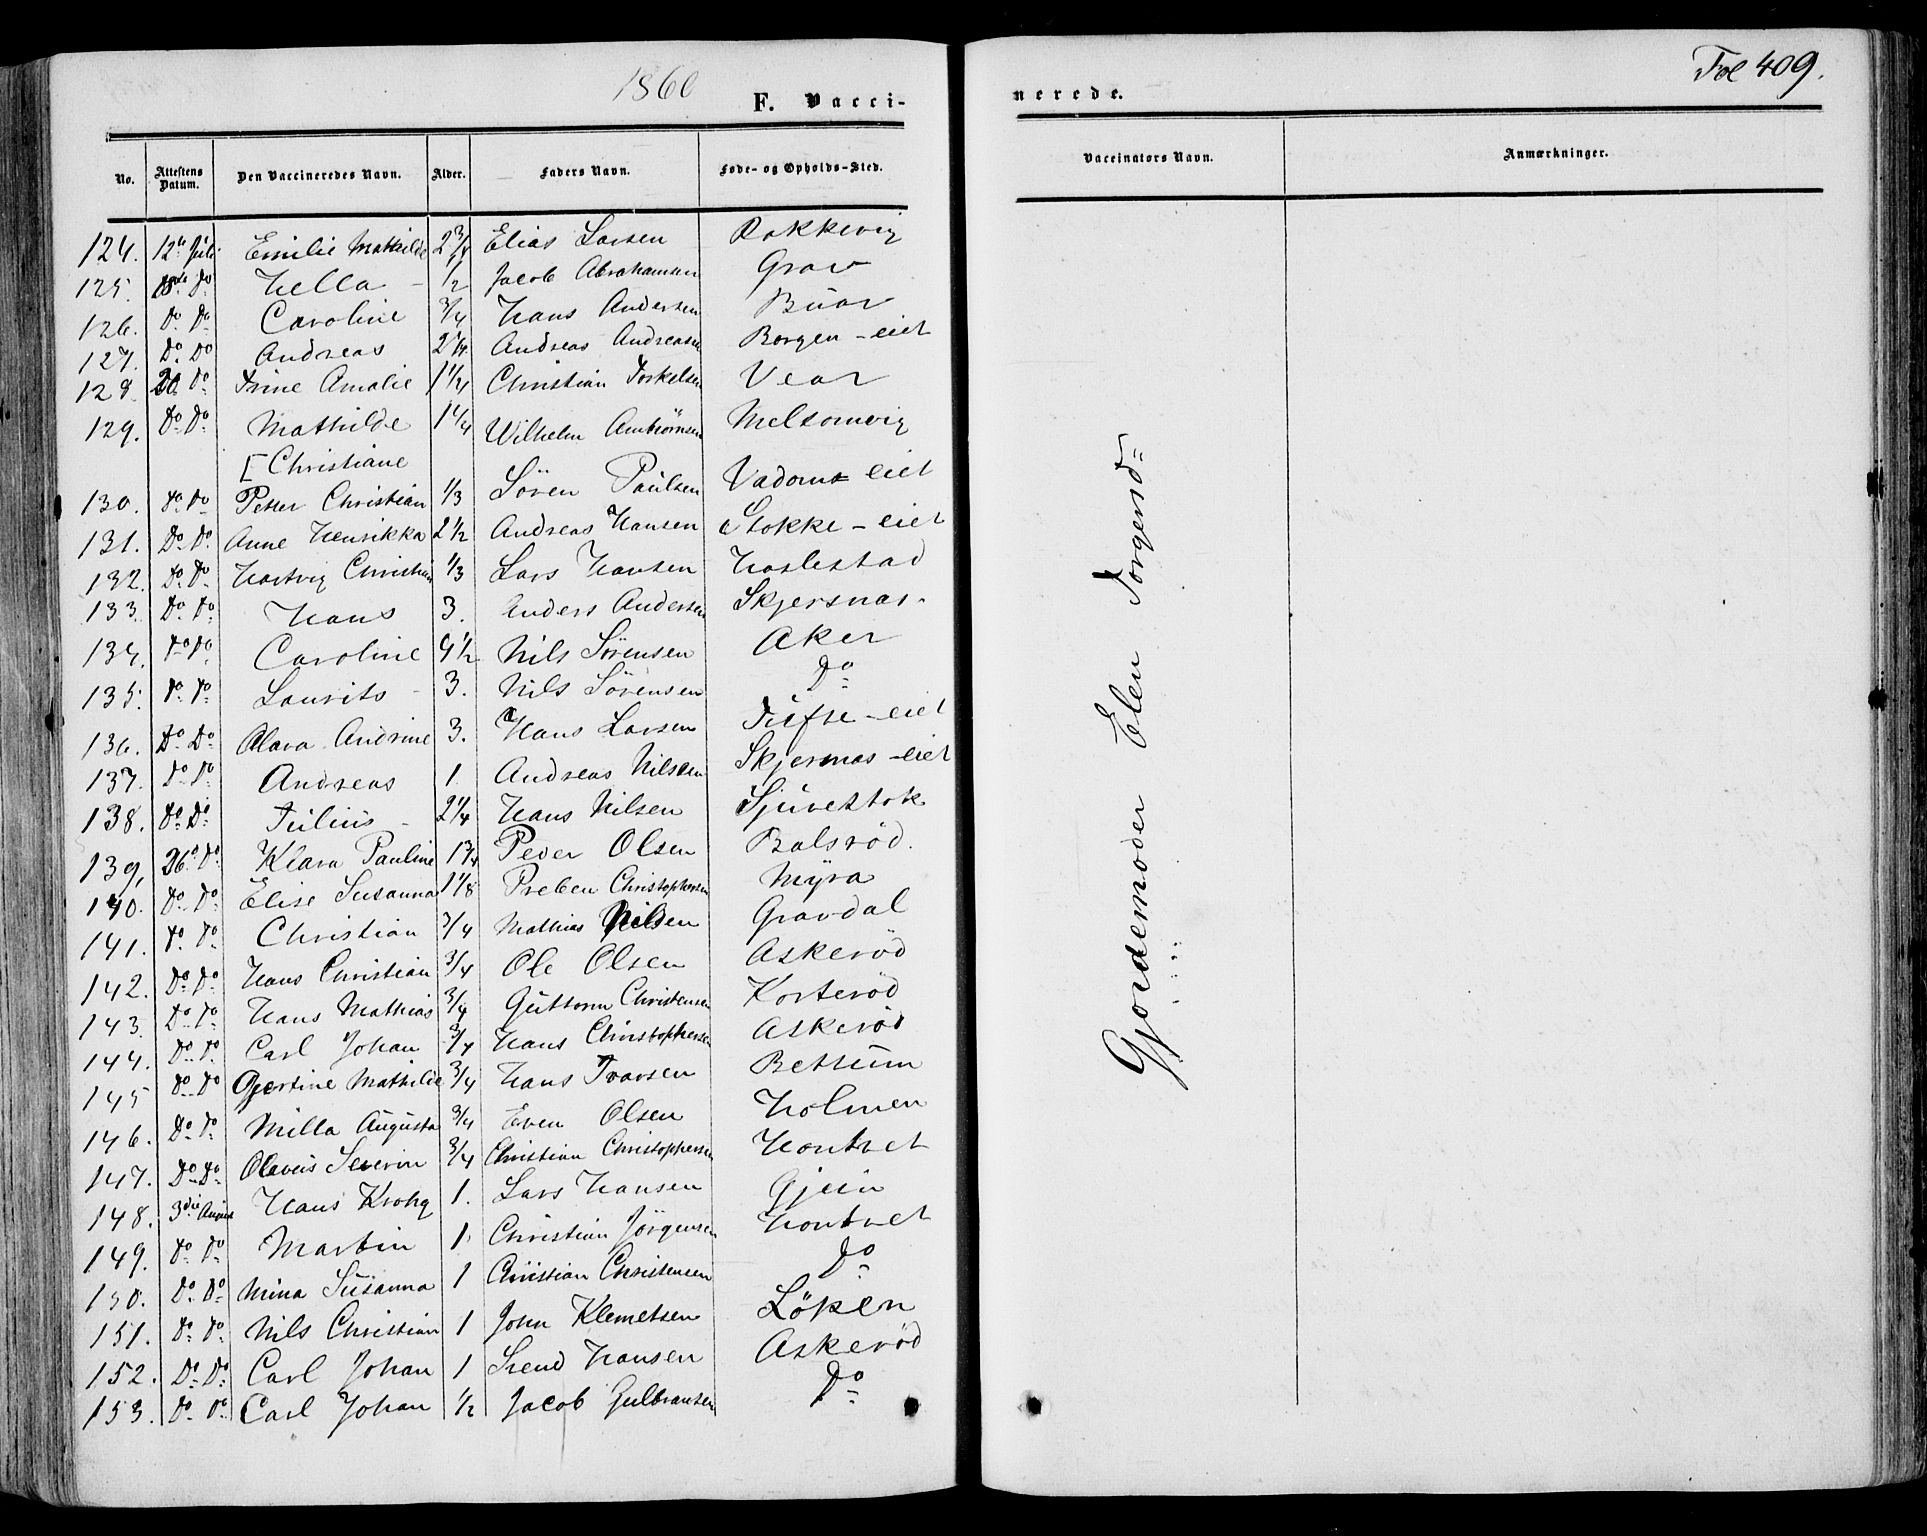 1860
F. Vacci-
nerede.
Fol 409.
No. Attestens Datum. Den Vaccineredes Navn. Alder. Faders Navn. Føde- og Opholds-Sted. Vaccinators Navn. Anmærkninger.
124. 12te Juli Emilie Mathilde 2 3/4 Elias Larsen Rakkevig
125. Do Hella - 1/2 Jacob Abrahamsen Grav
126. Do Do Caroline 3/4 Hans Andersen Buar
127. Do Do Andreas 2 1/4 Andreas Andreasen Borgen-eiet
128. 20 Do Trine Amalie 1 1/4 Christian Torkelsen Vear
129. Do Do Mathilde 1 1/4 Wilhelm Ambiørnsen Melsomvig
[Christiane
130. Do Do Petter Christian 1/3 Sören Paulsen Vadoms eiet
131. Do Do Anne Henrikka 2 1/2 Andreas Hansen Stokke-eiet
132. Do Do Hartvig Christian 1/3 Lars Hansen Haslestad
133. Do Do Hans 3. Anders Andersen Skjersnæs-
134. Do Do Caroline 4 1/2 Nils Sörensen Aker
135. Do Do Laurits - 3. Nils Sörensen Do
136. Do Do Alava Andrine 3. Hans Larsen Tufte-eiet
137. Do Do Andreas 1. Andreas Nilsen Skjersnæs-eiet
138. Do Do Julius - 2 1/4 Hans Nilsen Sjuestok
139, 26 Do Klara Pauline 1 3/4 Peder Olsen Balsröd.
140. Do Do Elise Susanna 1 1/8 Preben Christophersen Myra
141. Do Do Christian 3/4 Mathias Nilsen Gravdal
142. Do Do Hans Christian 3/4 Ole Olsen Askeröd
143. Do Do Hans Mathias 3/4 Guttorm Christensen Korteröd
144. Do Do Carl Johan 3/4 Hans Christophersen Askeröd
145 Do Do Gjertine Mathilde 3/4 Hans Ivarsen Bettum
146. Do Do Milla Augusta 3/4 Even Olsen Holmen
147. Do Do Olavus Severin 3/4 Christian Christophersen Hontvet
148. 3die August Hans Krohg 1. Lars Hansen Gjein
149. Do Do Martin 1. Christian Jörgensen Hontvet
150. Do Do Mina Susanna 1 Christian Christensen Do
151. Do Do Nils Christian 1 John Klemetsen Löken
152. Do Do Carl Johan 1 Svend Hansen Askeröd
153. Do Do Carl Johan 1/2 Jacob Gulbransen Do
Gjordemoder Elen Torgersd